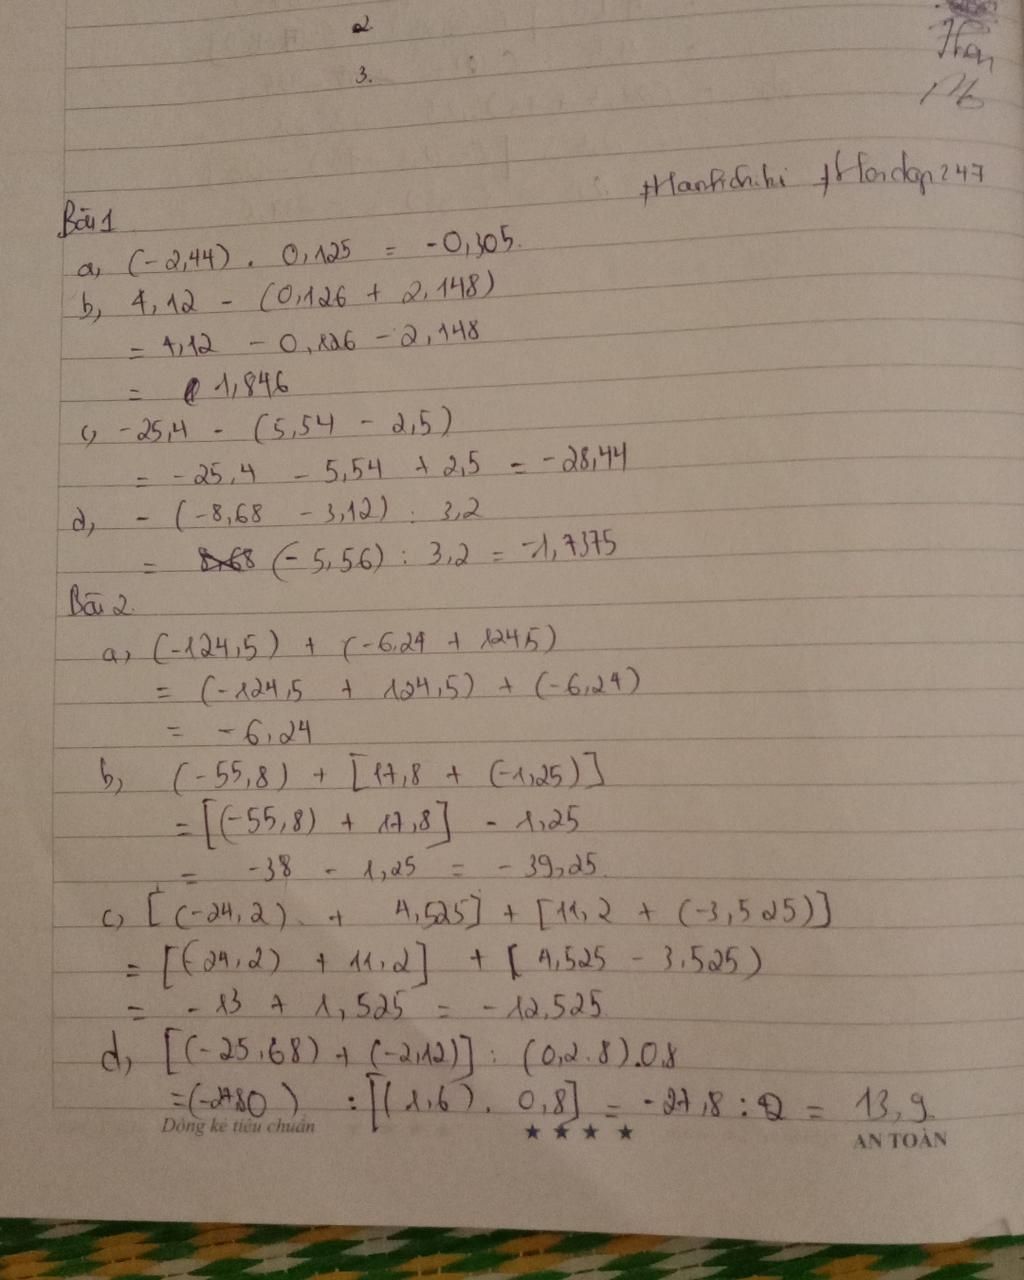 2
3.
#Hanfichihi #Hoidap247
Bài 1
a, (-2,44) . 0,125 = -0,305.
b, 4,12 - (0,126 + 2,148)
= 4,12 - 0,126 - 2,148
= 1,846
c, -25,4 - (5,54 - 2,5)
= -25,4 - 5,54 + 2,5 = -28,44
d, - (-8,68 - 3,12) : 3,2
= (-5,56) : 3,2 = -1,7375
Bài 2.
a, (-124,5) + (-6,24 + 124,5)
= (-124,5 + 124,5) + (-6,24)
= -6,24
b, (-55,8) + [17,8 + (-1,25)]
= [(-55,8) + 17,8] - 1,25
= -38 - 1,25 = -39,25.
c, [(-24,2) + 4,525] + [11,2 + (-3,525)]
= [(-24,2) + 11,2] + [4,525 - 3,525)
= -13 + 1,525 = -12,525
d, [(-25,68) + (-2,12)] : (0,2.8).0,8
=(-2780) : [(1,6). 0,8] = -27,8 : 2 = 13,9.
Dòng kẻ tiêu chuẩn ★ ★ ★ ★ AN TOÀN